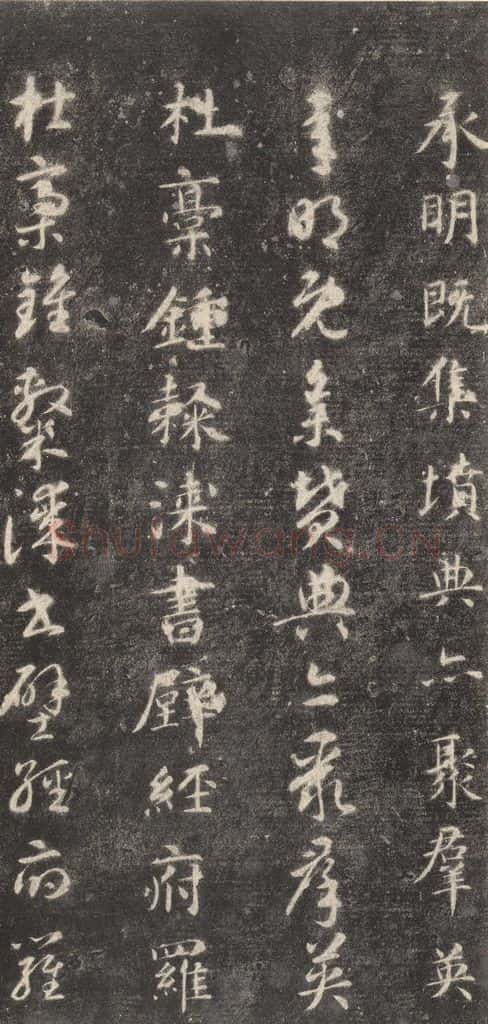 承明既集墳典亦聚羣英
承明既集墳典亦聚羣英
杜稾鍾隸漆書壁經府羅
杜稾鍾隸漆書壁經府羅
Shufawang.CN